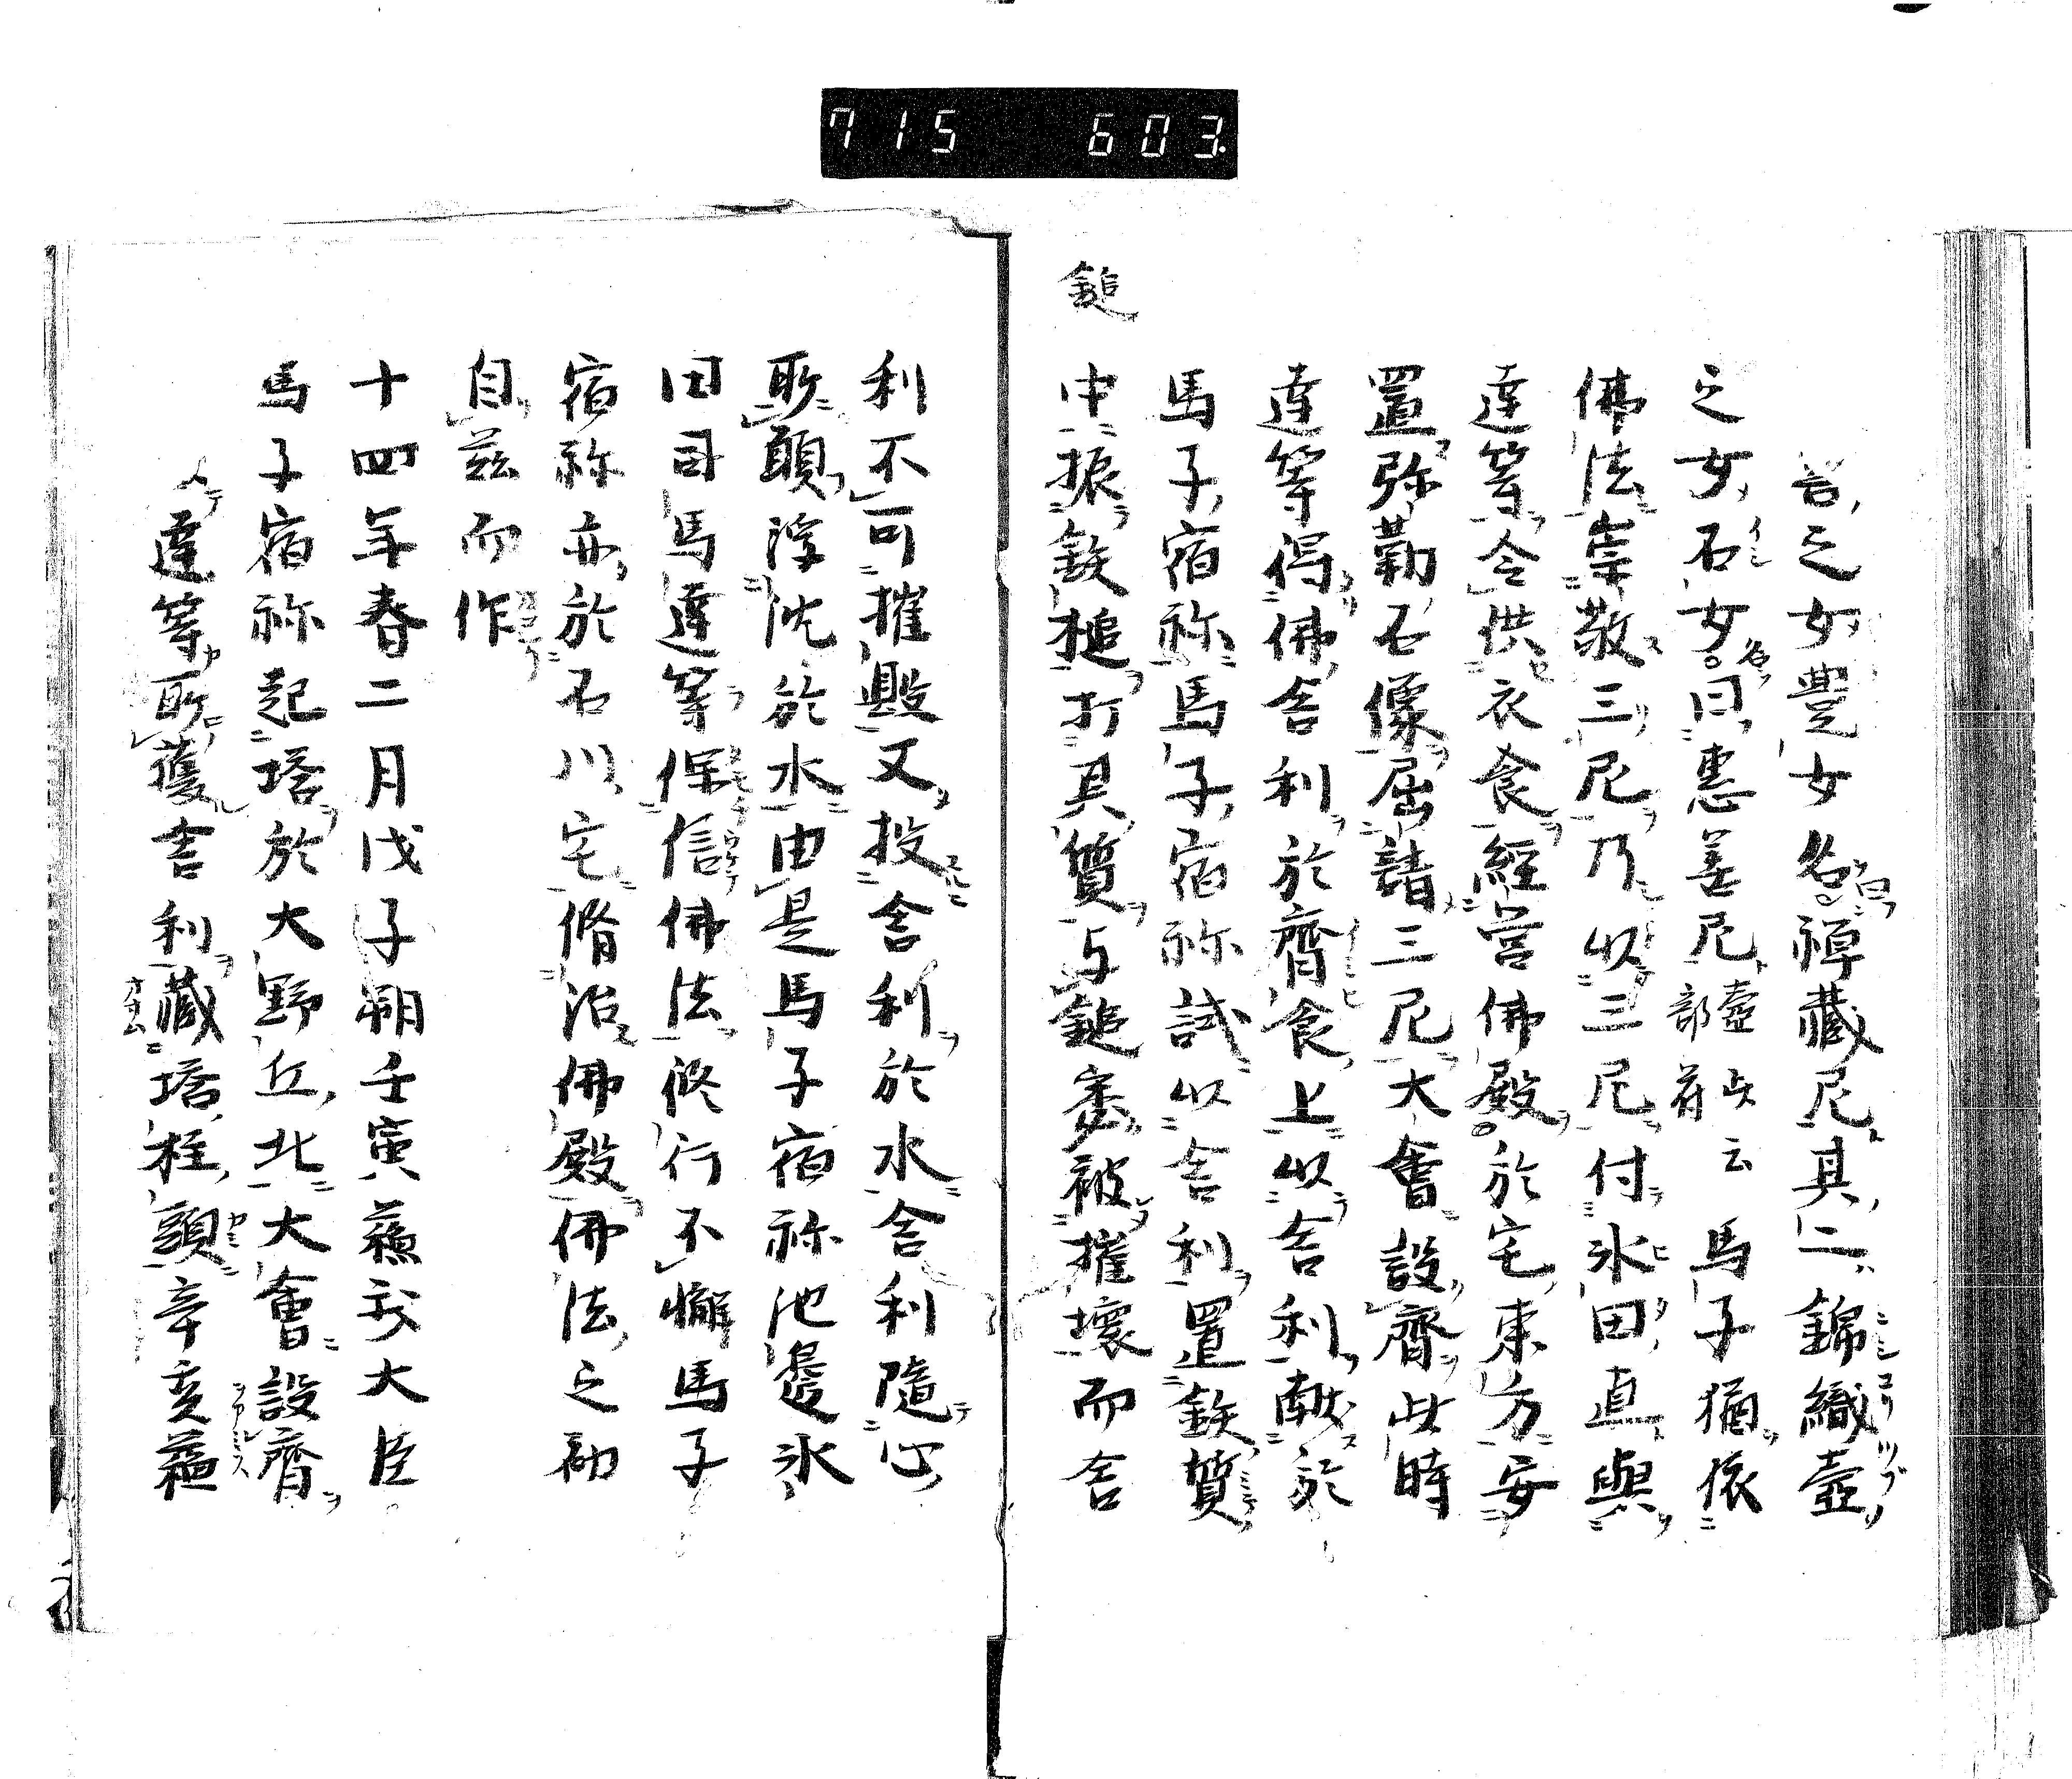 715 603
菩之女豐女名曰禅藏尼其二錦織壺
之女石女曰恵善尼壺此云都符馬子猶依
佛法崇敬三尼乃以三尼付氷田直與
達等令供衣食經営佛殿於宅東方安
置弥勒石像屈請三尼大會設齊此時
達等得佛舎利於齊食上以舎利献於
馬子宿祢馬子宿祢試以舎利置鉄質
鎚
中振鉄槌打其質与鎚悉被摧壊而舎
利不可摧毀又投舎利於水舎利随心
所願浮沈於水由是馬子宿祢池邊氷
田司馬達等保信佛法修行不懈馬子
宿祢亦於石川宅脩治佛殿佛法之初
自茲而作
十四年春二月戊子朔壬寅蘇我大臣
馬子宿祢起塔於大野丘北大會設齊
達等所獲舎利藏塔柱頭辛亥蘇